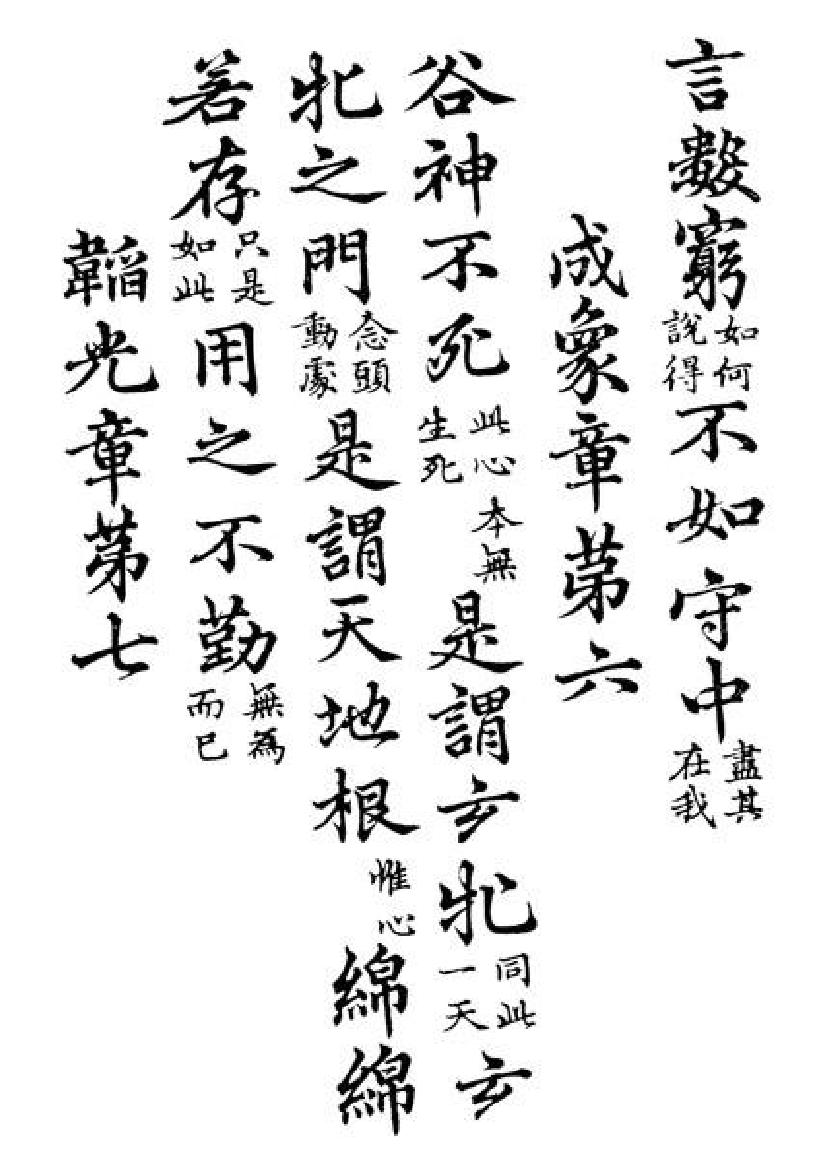 言數窮如何說得不如守中盡其在我
成象章第六
谷神不死此心本無生死是謂玄牝同此一天玄
牝之門念頭動處是謂天地根惟心綿綿
若存只是如此用之不勤無為而已
韜光章第七